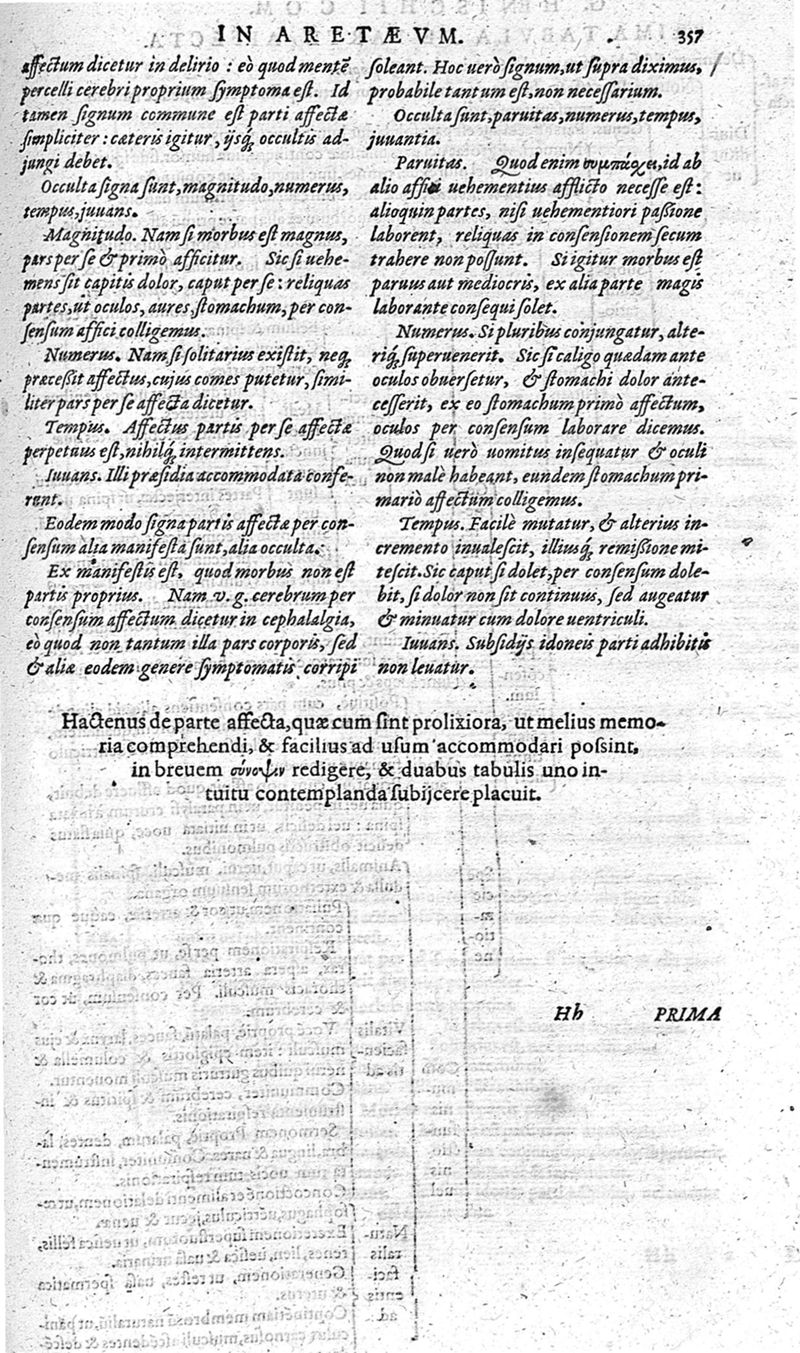 IN ARETÆVM. 357
affectum dicetur in delirio : eò quod mentē
percelli cerebri proprium ſymptoma eſt. Id
tamen signum commune eſt parti affectæ
ſimpliciter : cæteris igitur, ijsq́; occultis ad-
jungi debet.
Occulta ſigna ſunt, magnitudo, numerus,
tempus, juuans.
Magnitudo. Nam ſi morbus eſt magnus,
pars per ſe & primò afficitur. Sic ſi uehe-
mens ſit capitis dolor, caput per ſe : reliquas
partes, ut oculos, aures, ſtomachum, per con-
ſenſum affici colligemus.
Numerus. Nam ſi ſolitarius exiſtit, neq́;
præceßit affectus, cujus comes putetur, ſimi-
liter pars per ſe affecta dicetur.
Tempus. Affectus partis per ſe affectæ
perpetuus eſt, nihilq́; intermittens.
Iuuans. Illi præſidia accommodata confe-
runt.
Eodem modo ſigna partis affectæ per con-
ſenſum alia manifeſta ſunt, alia occulta.
Ex manifeſtis eſt, quod morbus non eſt
partis proprius. Nam v. g. cerebrum per
conſenſum affectum dicetur in cephalalgia,
eò quod non tantum illa pars corporis, ſed
& aliæ eodem genere ſymptomatis corripi
ſoleant. Hoc uerò ſignum, ut ſupra diximus,
probabile tantum eſt, non neceſſarium.
Occulta ſunt, paruitas, numerus, tempus,
juuantia.
Paruitas. Quod enim συμπάσχει, id ab
alio affici uehementius afflicto neceſſe eſt :
alioquin partes, niſi uehementiori paßione
laborent, reliquas in conſenſionem ſecum
trahere non poſſunt. Si igitur morbus eſt
paruus aut mediocris, ex alia parte magis
laborante conſequi ſolet.
Numerus. Si pluribus conjungatur, alte-
riq́; ſuperuenerit. Sic ſi caligo quædam ante
oculos obuerſetur, & ſtomachi dolor ante-
ceſſerit, ex eo ſtomachum primò affectum,
oculos per conſenſum laborare dicemus.
Quod ſi uerò uomitus inſequatur & oculi
non malè habeant, eundem ſtomachum pri-
mariò affectum colligemus.
Tempus. Facilè mutatur, & alterius in-
cremento inualeſcit, illiusq́; remißione mi-
teſcit. Sic caput ſi dolet, per conſenſum dole-
bit, ſi dolor non ſit continuus, ſed augeatur
& minuatur cum dolore uentriculi.
Iuuans. Subſidijs idoneis parti adhibitis
non leuatur.
Hactenus de parte affecta, quæ cum ſint prolixiora, ut melius memo-
ria comprehendi, & facilius ad uſum accommodari poſsint,
in breuem σύνοψιν redigere, & duabus tabulis uno in-
tuitu contemplanda ſubijcere placuit.
Hh PRIMA